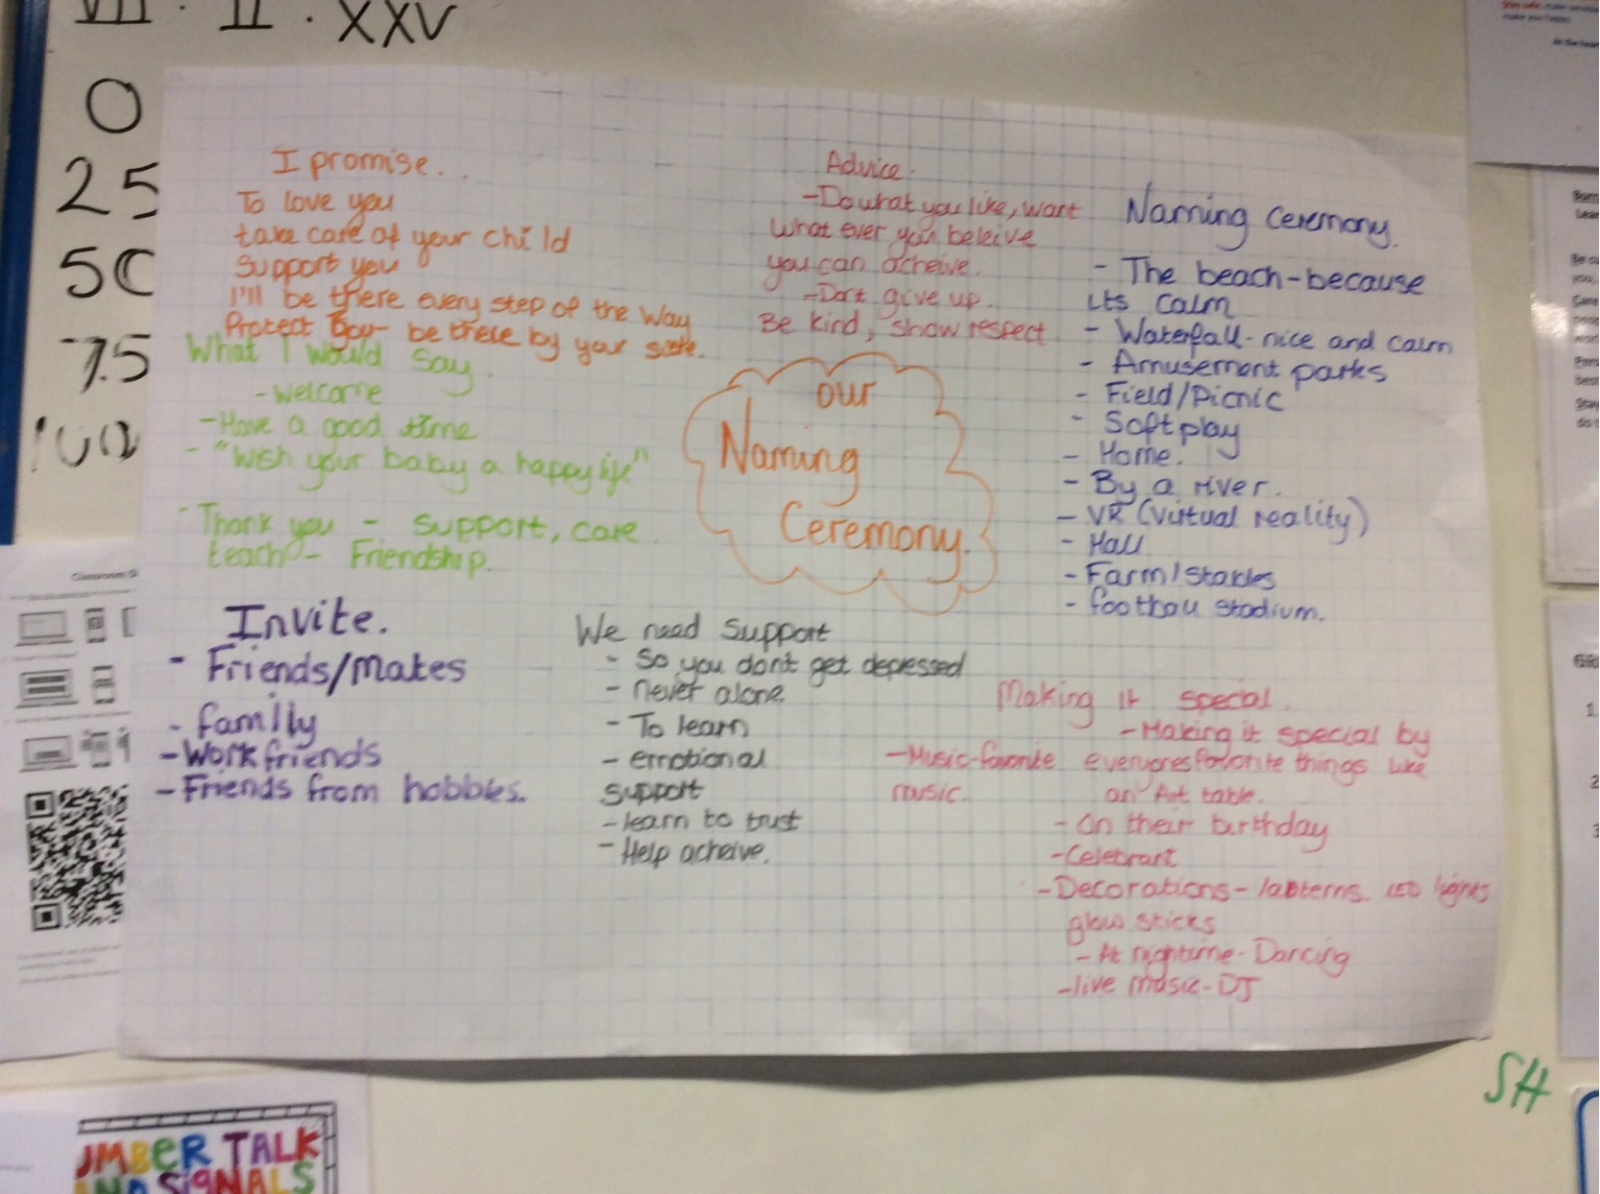 VII . II . XXV
0
25
50
75
100
I promise...
To love you
take care of your child
Support you
I'll be there every step of the way
Protect you be there by your side.
What I would say
- Welcome
- Have a good time
- "Wish your baby a happy life"
- Thank you - support, care
teach - Friendship.
Advice.
- Do what you like, want
What ever you beleive
you can acheive.
- Dont give up.
Be kind, show respect
our
Naming
Ceremony.
Naming Ceremony.
- The beach - because
its calm
- Waterfall - nice and calm
- Amusement parks
- Field/Picnic
- Soft play
- Home.
- By a river.
- VR (virtual reality)
- Hall
- Farm/stables
- football stadium.
Invite.
- Friends/Mates
- family
- Work friends
- Friends from hobbies.
We need support
- So you dont get depressed
- never alone
- To learn
- emotional
support
- learn to trust
- Help acheive.
Making it special.
- Making it special by
everyones favorite things like
an Art table.
- Music - favorite
music.
- On their birthday
- Celebrant
- Decorations - lanterns. LED lights
glow sticks
- At nightime - Dancing
- live music - DJ
SH
UMBER TALK
AND SIGNALS